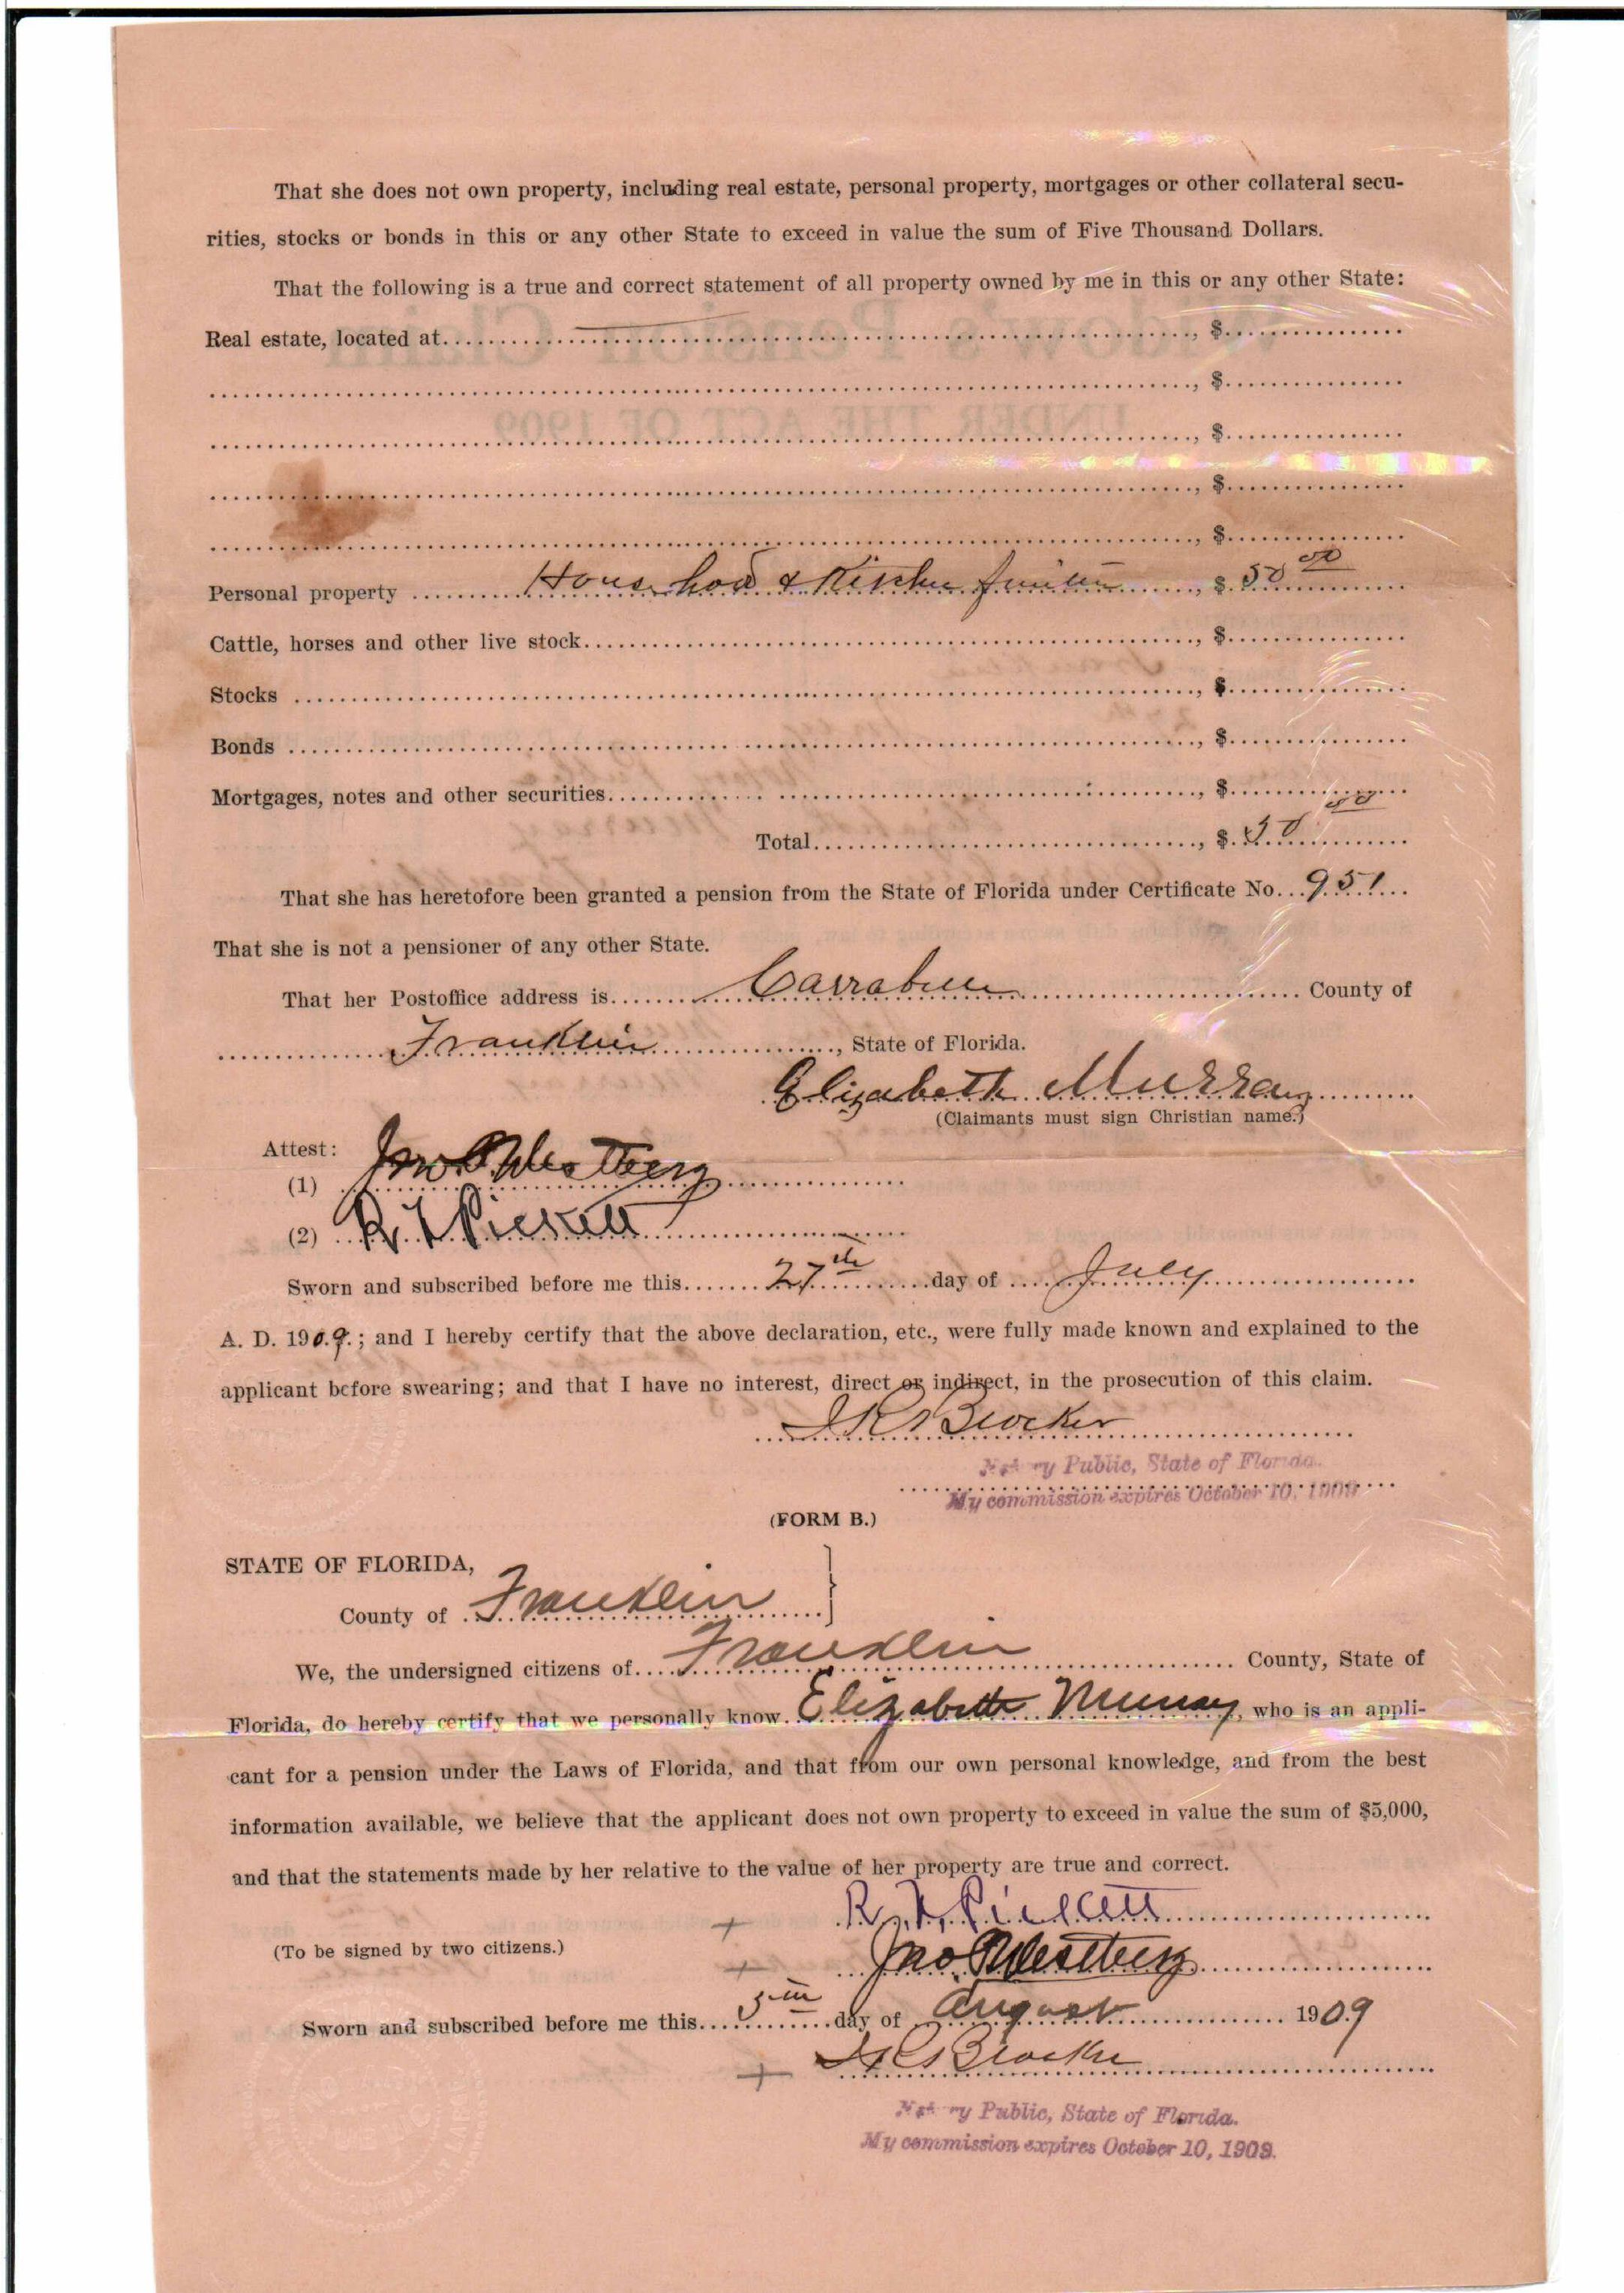 That she does not own property, including real estate, personal property, mortgages or other collateral secu-
rities, stocks or bonds in this or any other State to exceed in value the sum of Five Thousand Dollars.
That the following is a true and correct statement of all property owned by me in this or any other State:
Real estate, located at........, $........
........, $........
........, $........
........, $........
........, $........
Personal property ........ Household & Kitchen furniture ........, $ 50 00
Cattle, horses and other live stock........, $........
Stocks ........, $........
Bonds ........, $........
Mortgages, notes and other securities........, $........
Total........, $ 50 00
That she has heretofore been granted a pension from the State of Florida under Certificate No. 951
That she is not a pensioner of any other State.
That her Postoffice address is Carrabelle County of
Franklin, State of Florida.
Elizabeth Murray
(Claimants must sign Christian name.)
Attest:
(1) Jno. P. Westberg
(2) R. F. Pickett
Sworn and subscribed before me this 27th day of July
A. D. 1909.; and I hereby certify that the above declaration, etc., were fully made known and explained to the
applicant before swearing; and that I have no interest, direct or indirect, in the prosecution of this claim.
Notary Public, State of Florida.
My commission expires October 10, 1909
(FORM B.)
STATE OF FLORIDA,
County of Franklin
We, the undersigned citizens of Franklin County, State of
Florida, do hereby certify that we personally know Elizabeth Murray, who is an appli-
cant for a pension under the Laws of Florida, and that from our own personal knowledge, and from the best
information available, we believe that the applicant does not own property to exceed in value the sum of $5,000,
and that the statements made by her relative to the value of her property are true and correct.
R. F. Pickett
(To be signed by two citizens.)
Jno P. Westberg
Sworn and subscribed before me this 5th day of August 1909
Notary Public, State of Florida.
My commission expires October 10, 1909.